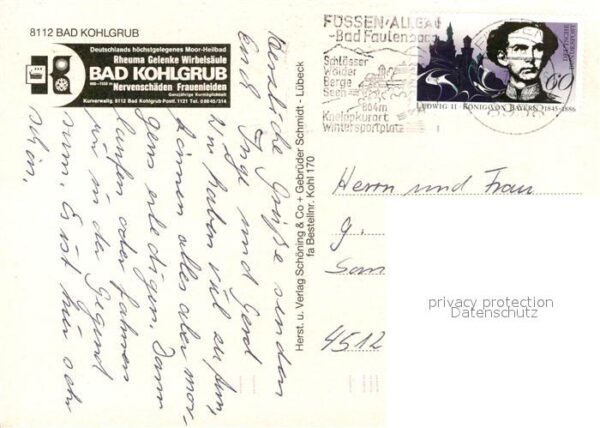 8112 BAD KOHLGRUB
Deutschlands höchstgelegenes Moor-Heilbad
Rheuma Gelenke Wirbelsäule
BAD KOHLGRUB
Nervenschäden Frauenleiden
Ganzjährige Kurmöglichkeit
Kurverwaltg. 8112 Bad Kohlgrub-Postf. 1121 Tel. 08845/314
Herzliche Grüße senden
Euch Inge und Gerd
Wir haben viel zu tun,
können alles aber mor-
gens erledigen. Dann
laufen oder fahren
wir in der Gegend
rum. Es ist hier sehr
schön.
Herst. u. Verlag Schöning & Co + Gebrüder Schmidt - Lübeck
fa Bestellnr. Kohl 170
FÜSSEN/ALLGÄU
-Bad Faulenbach
Schlösser
Wälder
Berge
Seen
804m
Kneippkurort
Wintersportplatz
DEUTSCHE BUNDESPOST
60
LUDWIG II · KÖNIG VON BAYERN · 1845-1886
Herrn und Frau
G.
4512
privacy protection
Datenschutz